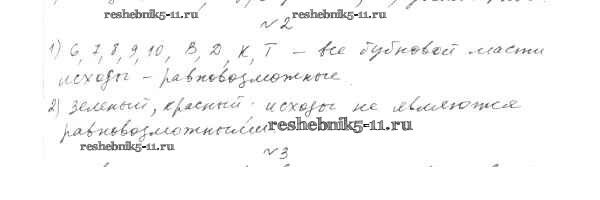 reshebnik5-11.ru
reshebnik5-11.ru
№2
1) 6, 7, 8, 9, 10, В, Д, К, Т – все бубновой масти
исходы – равновозможные.
2) зеленый, красный. исходы не являются
равновозможными
reshebnik5-11.ru
reshebnik5-11.ru
№3